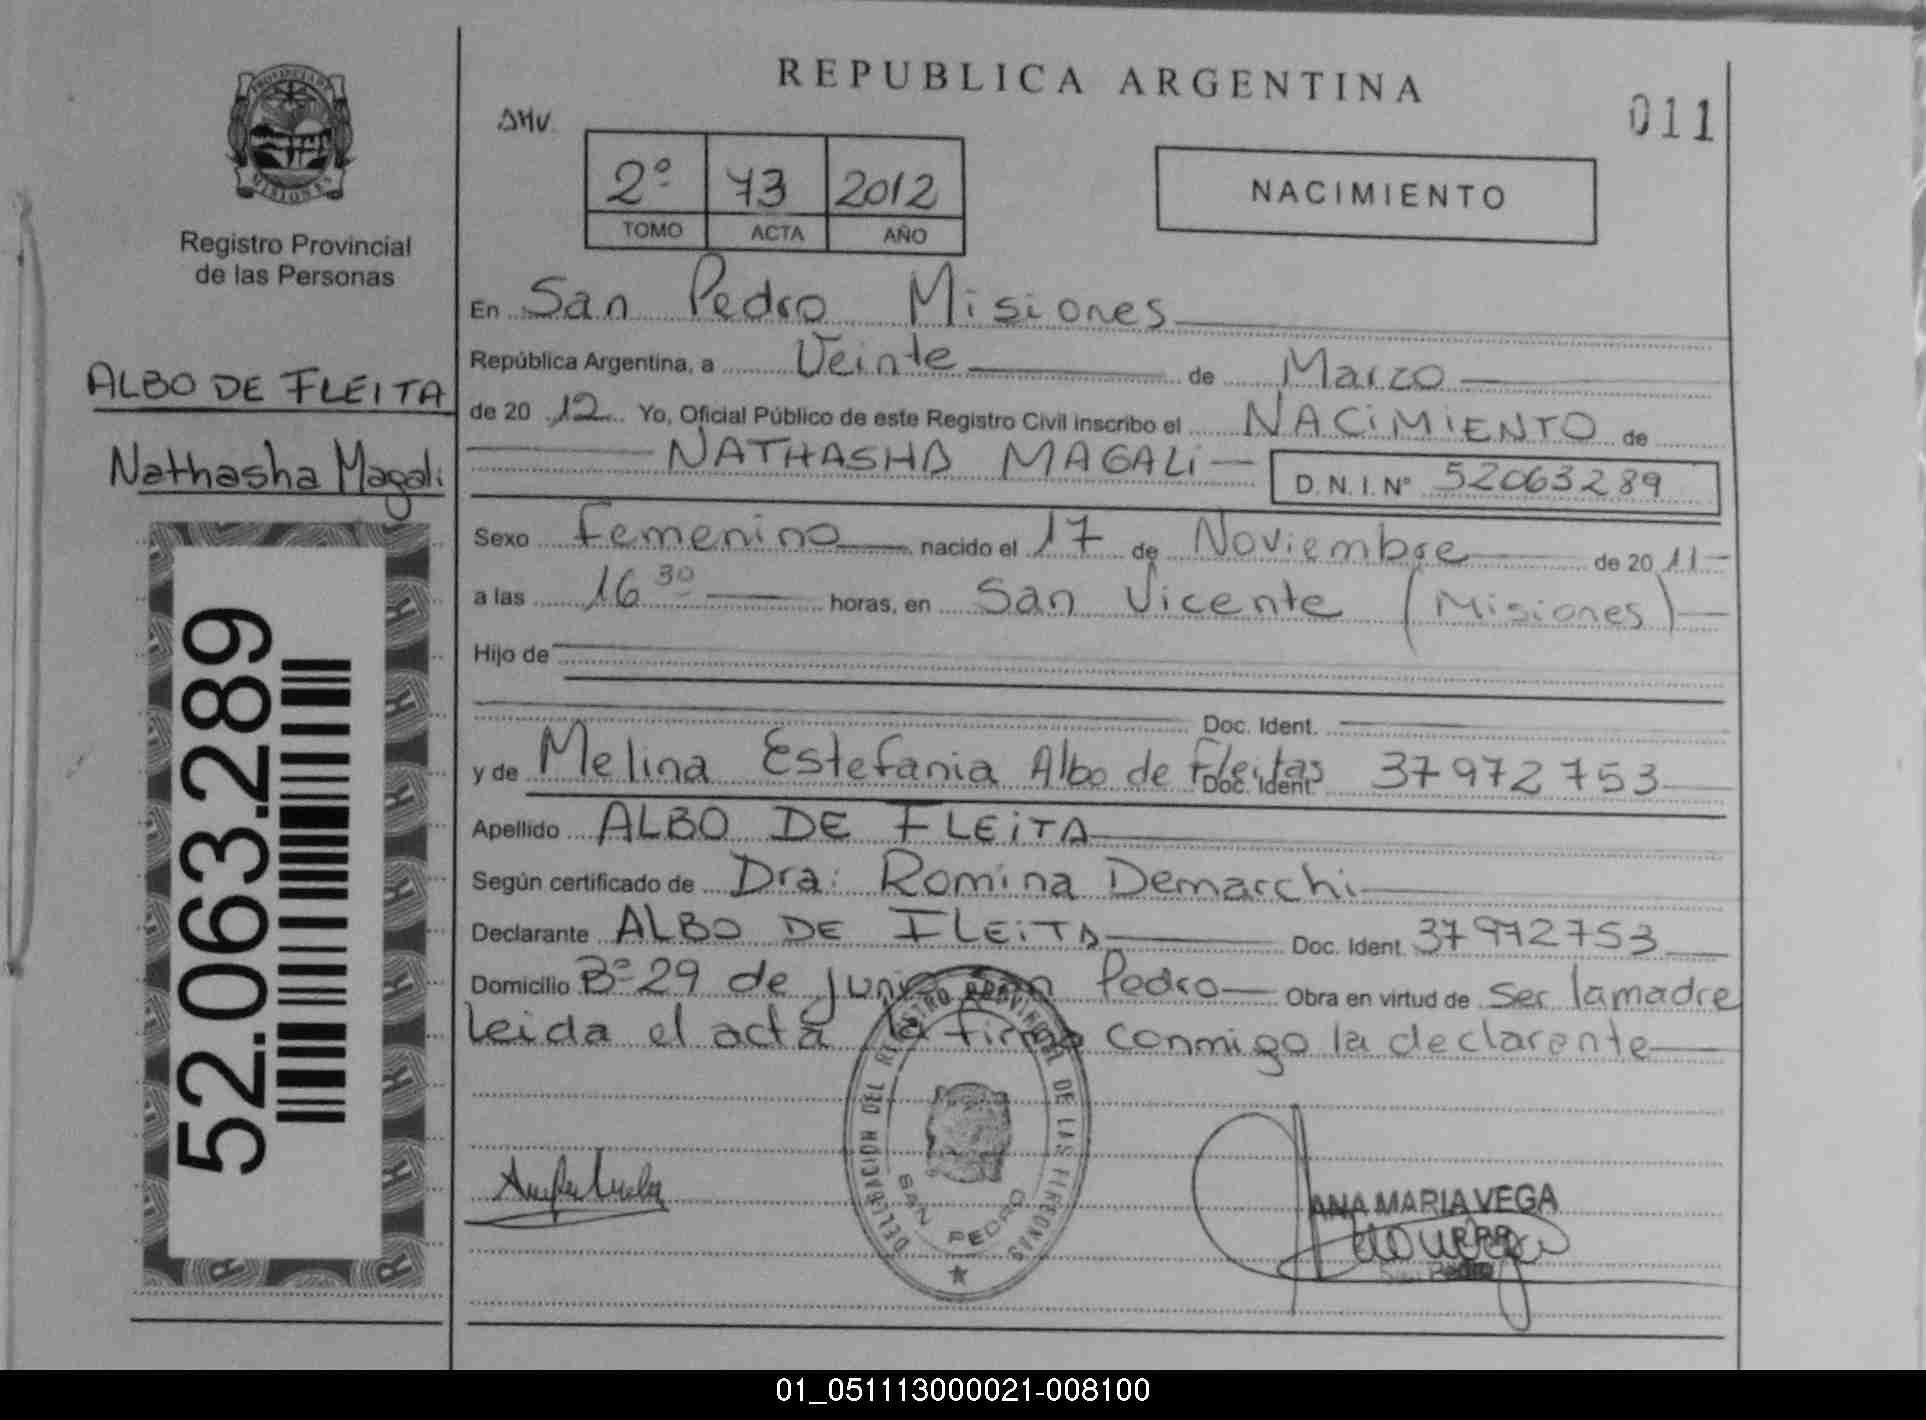 REPUBLICA ARGENTINA
011
PROVINCIA DE
MISIONES
Registro Provincial
de las Personas
2º 73 2012
TOMO ACTA AÑO
NACIMIENTO
En San Pedro Misiones
República Argentina, a Veinte de Marzo
de 20 12 Yo, Oficial Público de este Registro Civil inscribo el NACIMIENTO de
NATHASHA MAGALI D.N.I.Nº 52063289
ALBO DE FLEITA
Nathasha Magali
52.063.289
Sexo Femenino nacido el 17 de Noviembre de 20 11
a las 16 30 horas, en San Vicente (Misiones)
Hijo de
Doc. Ident.
y de Melina Estefania Albo de Fleitas Doc. Ident. 37972753
Apellido ALBO DE FLEITA
Según certificado de Dra: Romina Demarchi
Declarante ALBO DE FLEITA Doc. Ident. 37972753
Domicilio Bº 29 de Junio San Pedro Obra en virtud de Ser la madre
leida el acta la firma conmigo la declarante
DELEGACION DEL REGISTRO PROVINCIAL DE LAS PERSONAS
SAN PEDRO
ANA MARIA VEGA
San Pedro
01_051113000021-008100